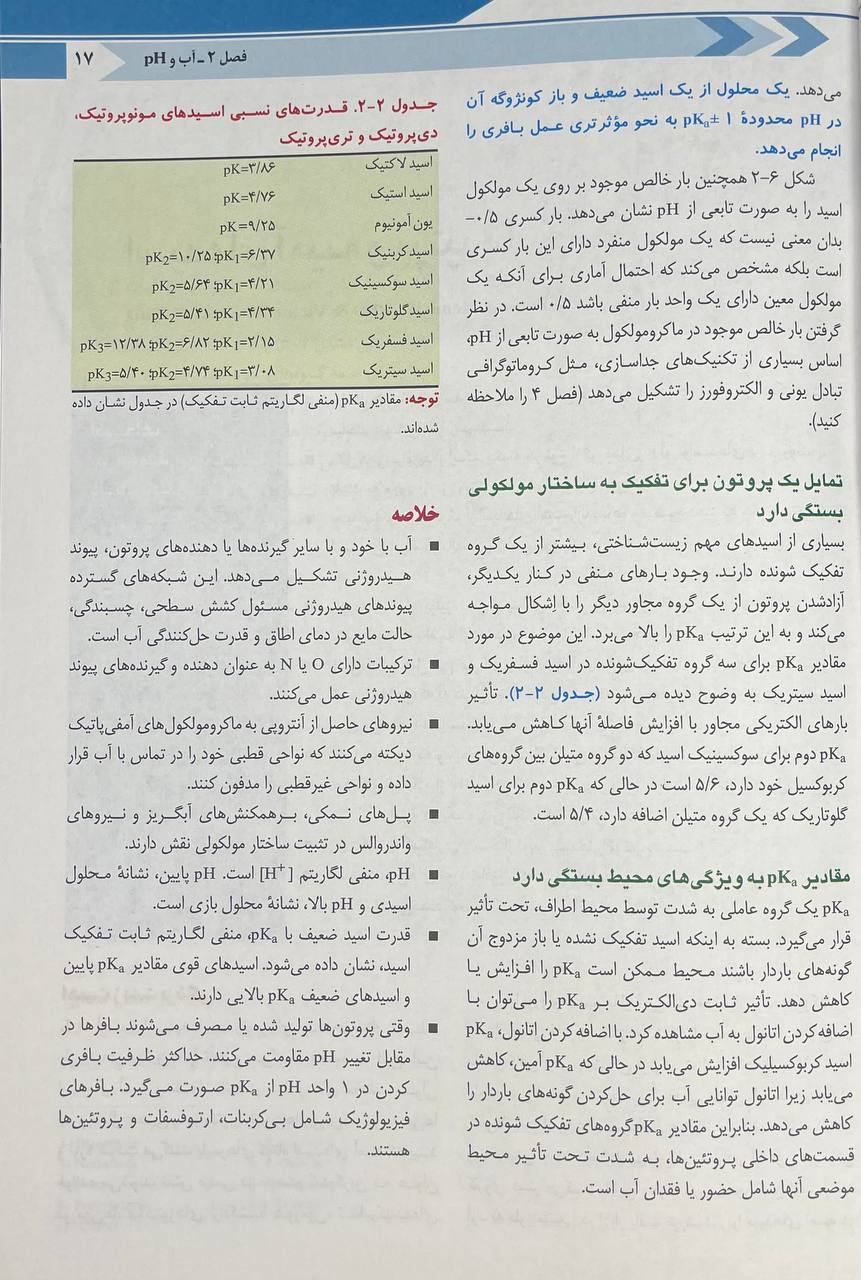 ۱۷
فصل ۲ ـ آب و pH
می‌دهد. یک محلول از یک اسید ضعیف و باز کونژوگه آن
در pH محدودهٔ pKa±۱ به نحو مؤثرتری عمل بافری را
انجام می‌دهد.
شکل ۶-۲ همچنین بار خالص موجود بر روی یک مولکول
اسید را به صورت تابعی از pH نشان می‌دهد. بار کسری ۰/۵−
بدان معنی نیست که یک مولکول منفرد دارای این بار کسری
است بلکه مشخص می‌کند که احتمال آماری برای آنکه یک
مولکول معین دارای یک واحد بار منفی باشد ۰/۵ است. در نظر
گرفتن بار خالص موجود در ماکرومولکول به صورت تابعی از pH،
اساس بسیاری از تکنیک‌های جداسازی، مثل کروماتوگرافی
تبادل یونی و الکتروفورز را تشکیل می‌دهد (فصل ۴ را ملاحظه
کنید).
تمایل یک پروتون برای تفکیک به ساختار مولکولی
بستگی دارد
بسیاری از اسیدهای مهم زیست‌شناختی، بیشتر از یک گروه
تفکیک شونده دارند. وجود بارهای منفی در کنار یکدیگر،
آزادشدن پروتون از یک گروه مجاور دیگر را با اِشکال مواجه
می‌کند و به این ترتیب pKa را بالا می‌برد. این موضوع در مورد
مقادیر pKa برای سه گروه تفکیک‌شونده در اسید فسفریک و
اسید سیتریک به وضوح دیده می‌شود (جدول ۲-۲). تأثیر
بارهای الکتریکی مجاور با افزایش فاصلهٔ آنها کاهش می‌یابد.
pKa دوم برای سوکسینیک اسید که دو گروه متیلن بین گروه‌های
کربوکسیل خود دارد، ۵/۶ است در حالی که pKa دوم برای اسید
گلوتاریک که یک گروه متیلن اضافه دارد، ۵/۴ است.
مقادیر pKa به ویژگی‌های محیط بستگی دارد
pKa یک گروه عاملی به شدت توسط محیط اطراف، تحت تأثیر
قرار می‌گیرد. بسته به اینکه اسید تفکیک نشده یا باز مزدوج آن
گونه‌های باردار باشند محیط ممکن است pKa را افزایش یا
کاهش دهد. تأثیر ثابت دی‌الکتریک بر pKa را می‌توان با
اضافه کردن اتانول به آب مشاهده کرد. با اضافه کردن اتانول، pKa
اسید کربوکسیلیک افزایش می‌یابد در حالی که pKa آمین، کاهش
می‌یابد زیرا اتانول توانایی آب برای حل‌کردن گونه‌های باردار را
کاهش می‌دهد. بنابراین مقادیر pKa گروه‌های تفکیک شونده در
قسمت‌های داخلی پروتئین‌ها، به شدت تحت تأثیر محیط
موضعی آنها شامل حضور یا فقدان آب است.
جدول ۲-۲. قدرت‌های نسبی اسیدهای مونوپروتیک،
دی‌پروتیک و تری‌پروتیک
اسید لاکتیک pK=۳/۸۶
اسید استیک pK=۴/۷۶
یون آمونیوم pK=۹/۲۵
اسید کربنیک pK1=۶/۳۷؛ pK2=۱۰/۲۵
اسید سوکسینیک pK1=۴/۲۱؛ pK2=۵/۶۴
اسید گلوتاریک pK1=۴/۳۴؛ pK2=۵/۴۱
اسید فسفریک pK1=۲/۱۵؛ pK2=۶/۸۲؛ pK3=۱۲/۳۸
اسید سیتریک pK1=۳/۰۸؛ pK2=۴/۷۴؛ pK3=۵/۴۰
توجه: مقادیر pKa (منفی لگاریتم ثابت تفکیک) در جدول نشان داده
شده‌اند.
خلاصه
■ آب با خود و با سایر گیرنده‌ها یا دهنده‌های پروتون، پیوند
هیدروژنی تشکیل می‌دهد. این شبکه‌های گسترده
پیوندهای هیدروژنی مسئول کشش سطحی، چسبندگی،
حالت مایع در دمای اطاق و قدرت حل‌کنندگی آب است.
■ ترکیبات دارای O یا N به عنوان دهنده و گیرنده‌های پیوند
هیدروژنی عمل می‌کنند.
■ نیروهای حاصل از آنتروپی به ماکرومولکول‌های آمفی‌پاتیک
دیکته می‌کنند که نواحی قطبی خود را در تماس با آب قرار
داده و نواحی غیرقطبی را مدفون کنند.
■ پل‌های نمکی، برهمکنش‌های آبگریز و نیروهای
واندروالس در تثبیت ساختار مولکولی نقش دارند.
■ pH، منفی لگاریتم [H+] است. pH پایین، نشانهٔ محلول
اسیدی و pH بالا، نشانهٔ محلول بازی است.
■ قدرت اسید ضعیف با pKa، منفی لگاریتم ثابت تفکیک
اسید، نشان داده می‌شود. اسیدهای قوی مقادیر pKa پایین
و اسیدهای ضعیف pKa بالایی دارند.
■ وقتی پروتون‌ها تولید شده یا مصرف می‌شوند بافرها در
مقابل تغییر pH مقاومت می‌کنند. حداکثر ظرفیت بافری
کردن در ۱ واحد pH از pKa صورت می‌گیرد. بافرهای
فیزیولوژیک شامل بی‌کربنات، ارتوفسفات و پروتئین‌ها
هستند.